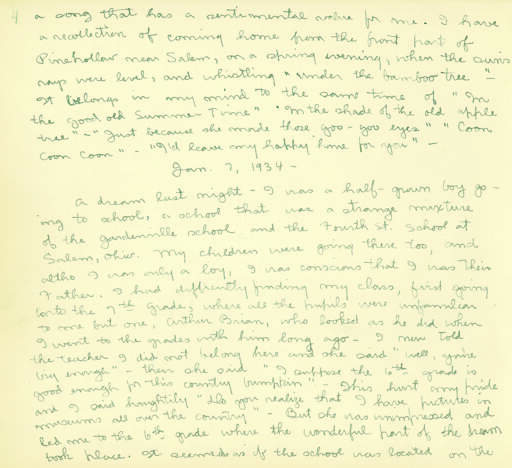 4 a song that has a sentimental value for me. I have
a recollection of coming home from the front part of
Pinehollow near Salem, on a spring evening, when the sun's
rays were level, and whistling "under the bamboo tree" -
It belongs in my mind to the same time of "In
the good old Summer Time" "In the shade of the old apple
tree" - "Just because she made those goo-goo eyes" "Coon
Coon Coon" - "I'd leave my happy home for you" -
Jan. 7, 1934 -
A dream last night - I was a half-grown boy go-
ing to school, a school that was a strange mixture
of the Gardenville school and the Fourth St. School at
Salem, Ohio. My children were going there too, and
altho I was only a boy, I was conscious that I was their
Father. I had difficulty finding my class, first going
into the 7th Grade, where all the pupils were unfamiliar
to me but one, Arthur Brian, who looked as he did when
I went to the grades with him long ago - I now told
the teacher I did not belong here and she said "well,
big enough" - then she said "I suppose the 6th grade is
good enough for this country bumpkin" - This hurt my pride
and I said haughtily "Do you realize that I have pictures in
museums all over the country" - But she was unimpressed and
led me to the 6th grade where the wonderful part of the dream
took place. It seemed as if the school was located on the